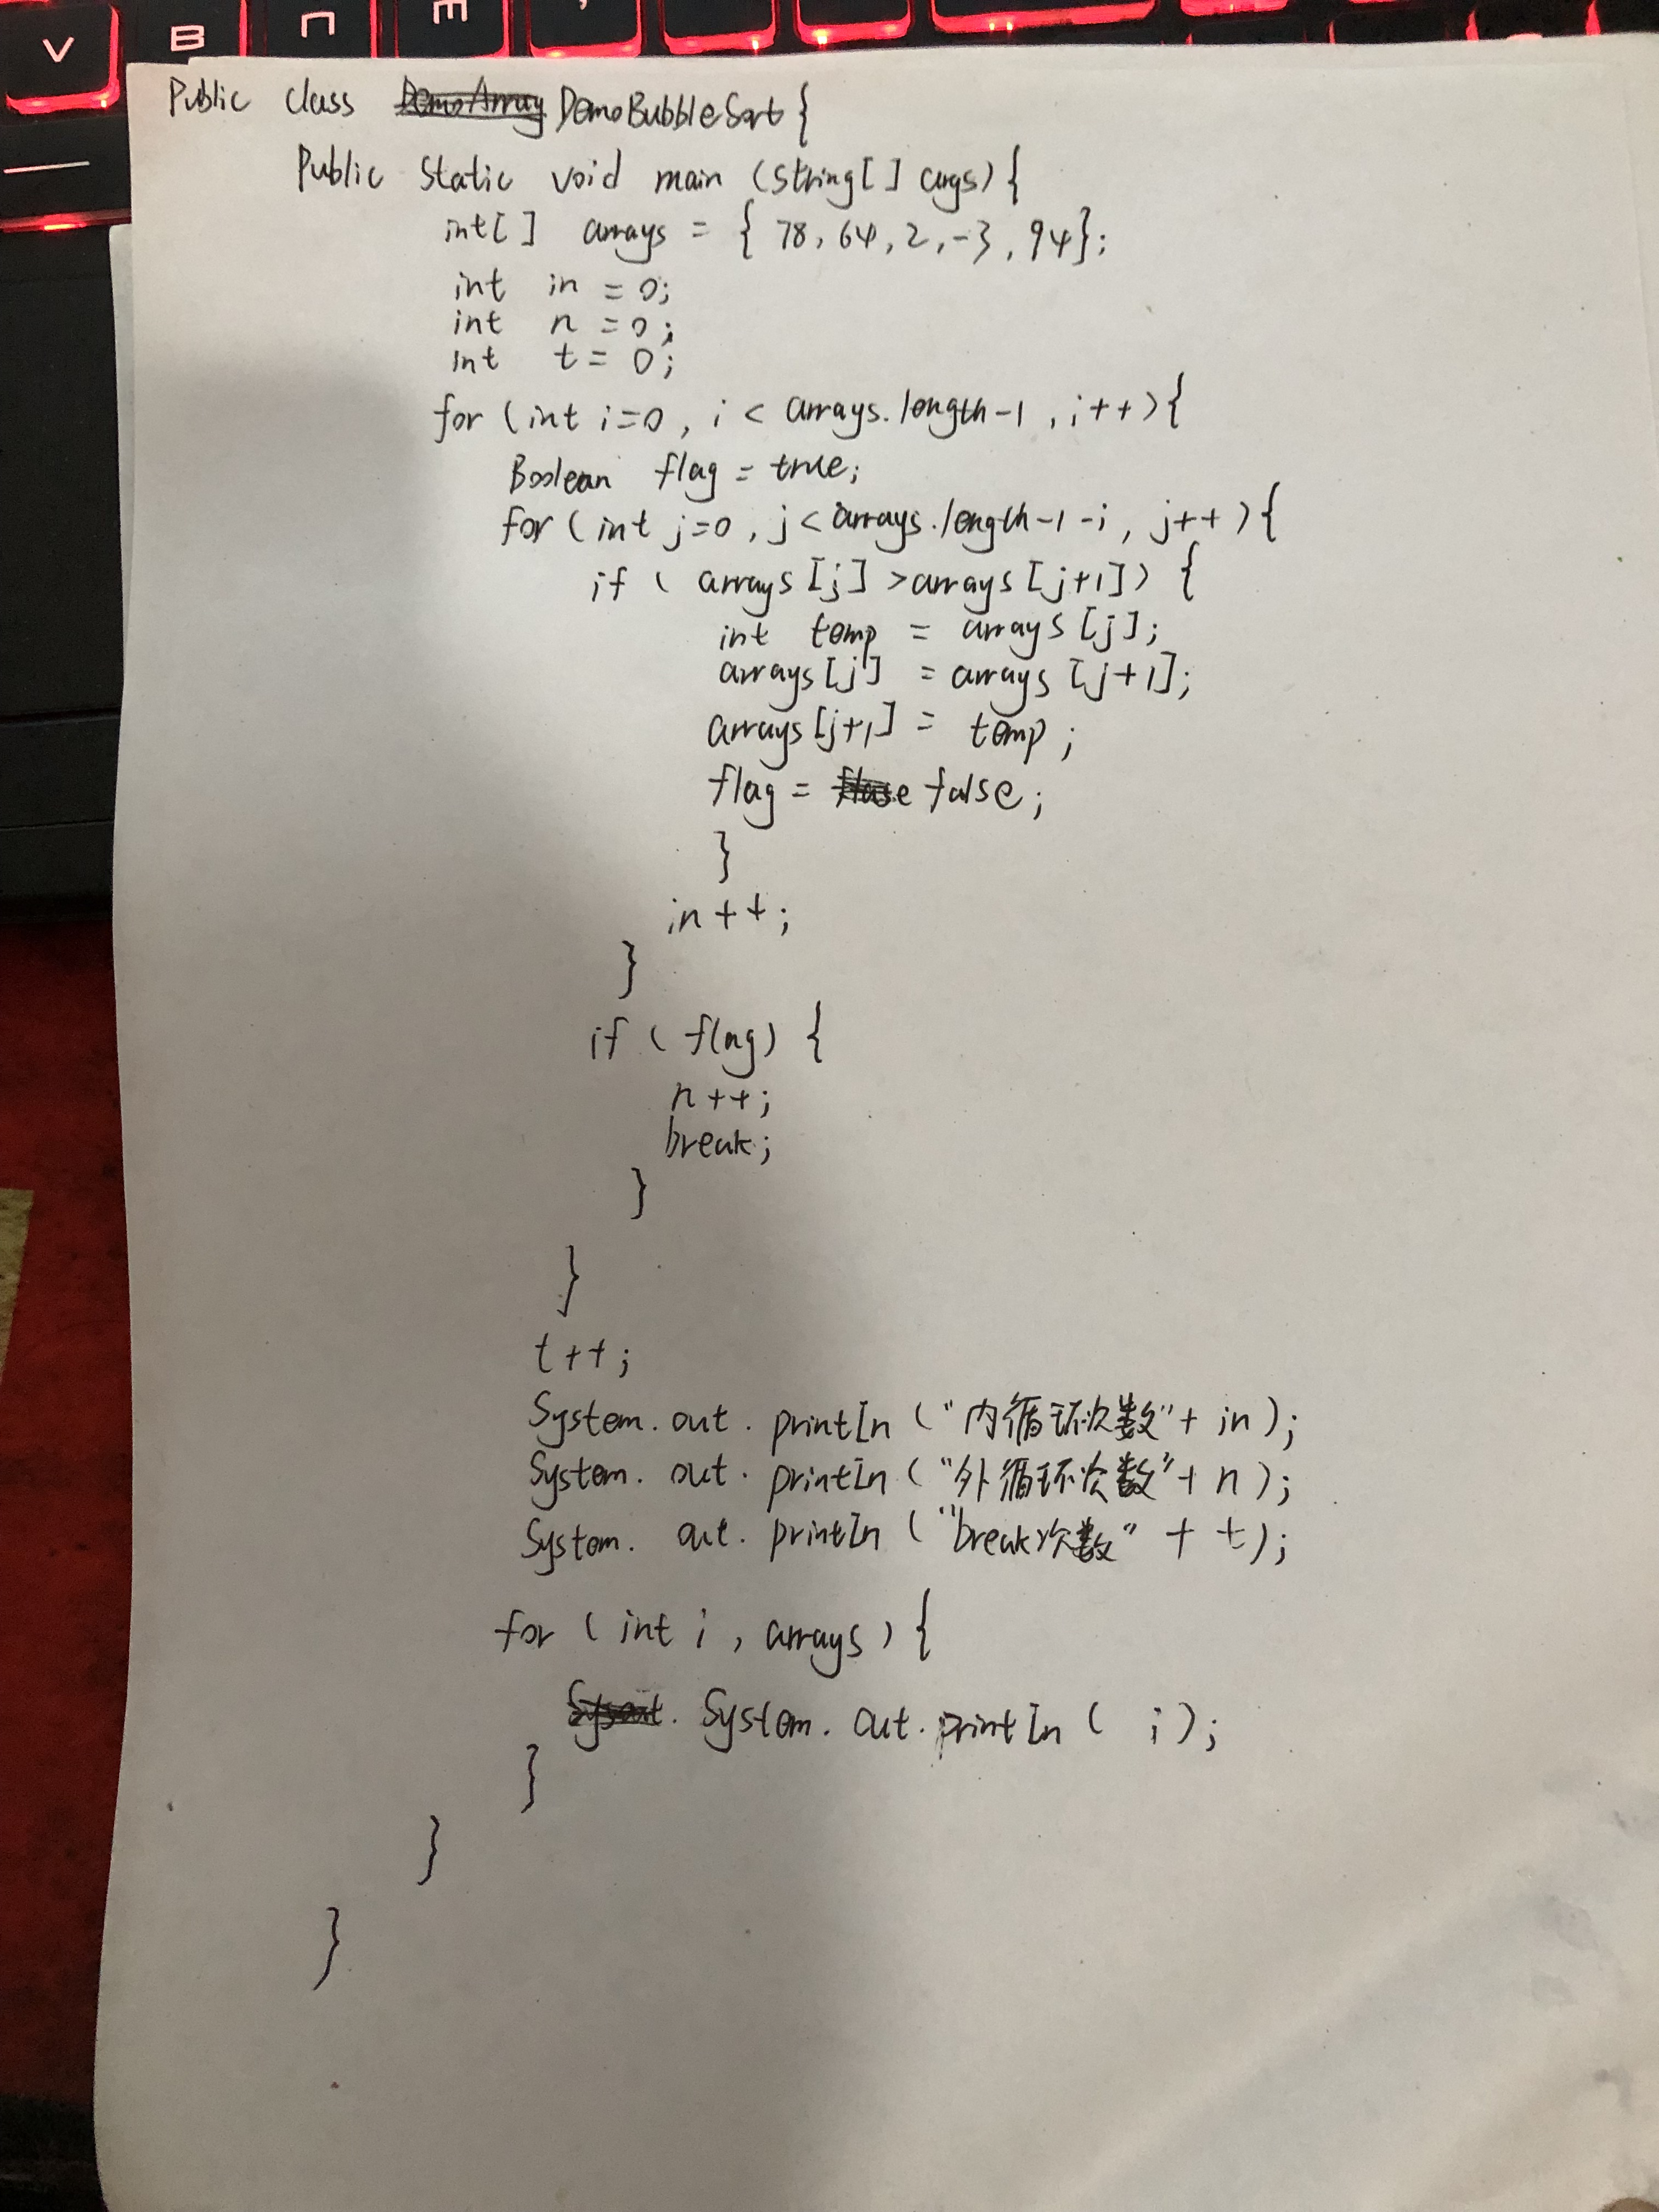 V B N M ,
Public class DemoArray DemoBubbleSort {
Public static void main (string[] args) {
int[] arrays = { 78, 64, 2, -3, 94};
int in = 0;
int n = 0;
int t = 0;
for (int i=0, i < arrays.length-1, i++){
Boolean flag = true;
for (int j=0, j<arrays.length-1-i, j++){
if ( arrays[j] >arrays[j+1]) {
int temp = arrays[j];
arrays[j] = arrays[j+1];
arrays[j+1] = temp;
flag = flase false;
}
in++;
}
if ( flag) {
n++;
break;
}
}
t++;
System.out.println ("内循环次数"+ in);
System.out.println ("外循环次数"+ n);
System.out.println ("break次数" + t);
for (int i, arrays) {
Sysout. System.out.println ( i);
}
}
}